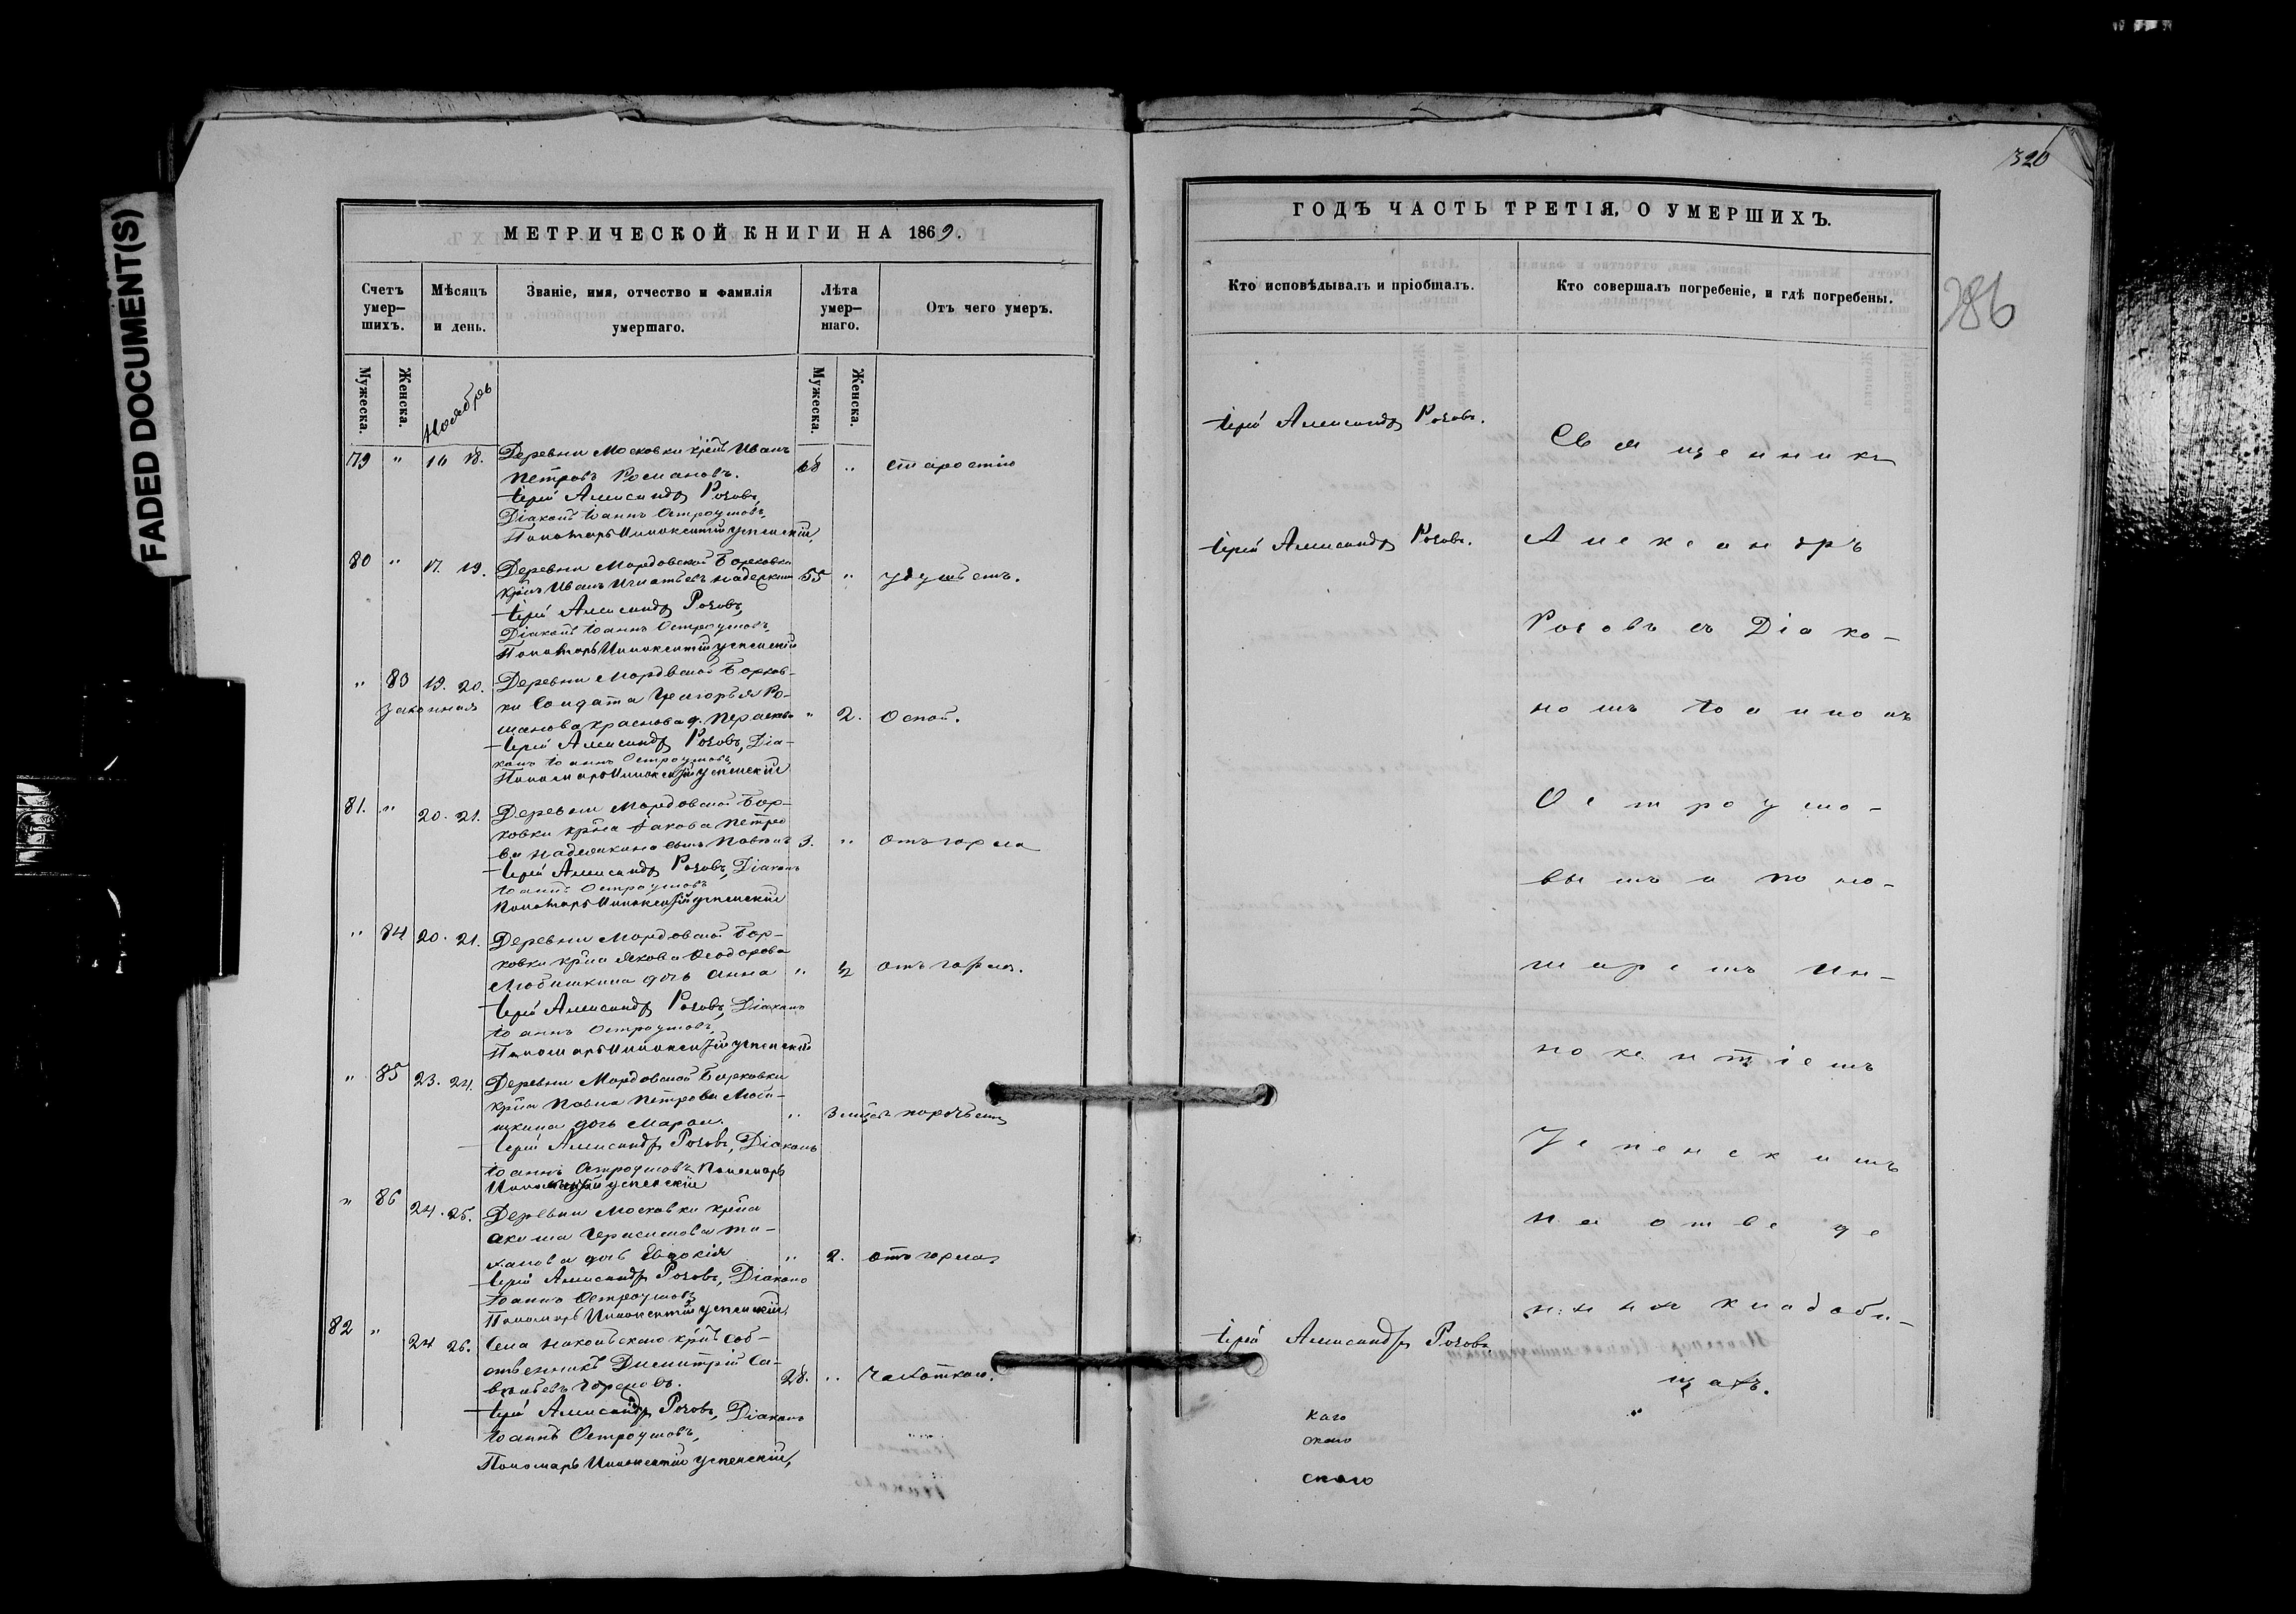 FADED DOCUMENT(S)
МЕТРИЧЕСКОЙ КНИГИ НА 1869.
Счетъ умер-
шихъ.
Мѣсяцъ
и день.
Званіе, имя, отчество и фамилія
умершаго.
Лѣта
умер-
шаго.
Отъ чего умеръ.
Мужеска.
Женска.
Ноябрь
Мужеска.
Женска.
79 " 16 18. Деревни Московки кр̃нъ Иванъ
Петровъ Романовъ. 68 " старостію
Іерей Александръ Розовъ,
Діаконъ Іоаннъ Остроумовъ,
Пономарь Иннокентій Успенскій,
80 " 17. 19. Деревни Мордовской Борковки
кр̃нъ Иванъ Игнатьевъ 55 " удушьемъ.
Іерей Александръ Розовъ,
Діаконъ Іоаннъ Остроумовъ,
Пономарь Иннокентій Успенскій
" 83 19. 20. Деревни Мордовской Борков-
законная ки Солдата Григорья Ро-
манова Краснова д. " 2. Оспой.
Іерей Александръ Розовъ, Діа-
конъ Іоаннъ Остроумовъ
Пономарь Иннокентій Успенскій
81. " 20. 21. Деревни Мордовской Бор-
ковки кр̃на Іакова Петро
ва сынъ 3. " отъ горла
Іерей Александръ Розовъ, Діаконъ
Іоаннъ Остроумовъ
Пономарь Иннокентій Успенскій
" 84 20. 21. Деревни Мордовской Бор-
ковки кр̃на Якова Ѳеодорова
Любишкина дочь Анна " ½ отъ горла.
Іерей Александръ Розовъ, Діаконъ
Іоаннъ Остроумовъ,
Пономарь Иннокентій Успенскій
" 85 23. 24. Деревни Мордовской Борковки
кр̃на Павла Петрова Люби-
шкина дочь " 3
Іерей Александръ Розовъ, Діаконъ
Іоаннъ Остроумовъ Пономарь
Иннокентій Успенскій
" 86 24. 25. Деревни Московки кр̃на
Акима Герасимова
дочь Евдокія " 2. отъ горла.
Іерей Александръ Розовъ, Діаконъ
Іоаннъ Остроумовъ
Пономарь Иннокентій Успенскій.
82 " 24 26. Села кр̃нъ соб-
ственникъ Димитрій Са-
вельевъ 28. " Чахоткою.
Іерей Александръ Розовъ, Діаконъ
Іоаннъ Остроумовъ,
Пономарь Иннокентій Успенскій,
320
ГОДЪ ЧАСТЬ ТРЕТІЯ, О УМЕРШИХЪ.
Кто исповѣдывалъ и пріобщалъ.
Кто совершалъ погребеніе, и гдѣ погребены.
286
Іерей Александръ Розовъ.
Священникъ
Іерей Александръ Розовъ.
Александръ
Розовъ съ Діако-
номъ Іоанномъ
Остроумо-
вымъ и поно-
маремъ Ин-
нокентіемъ
Успенскимъ
на отведе
нномъ кладби-
Іерей Александръ Розовъ
щахъ.
каго
скаго
скаго